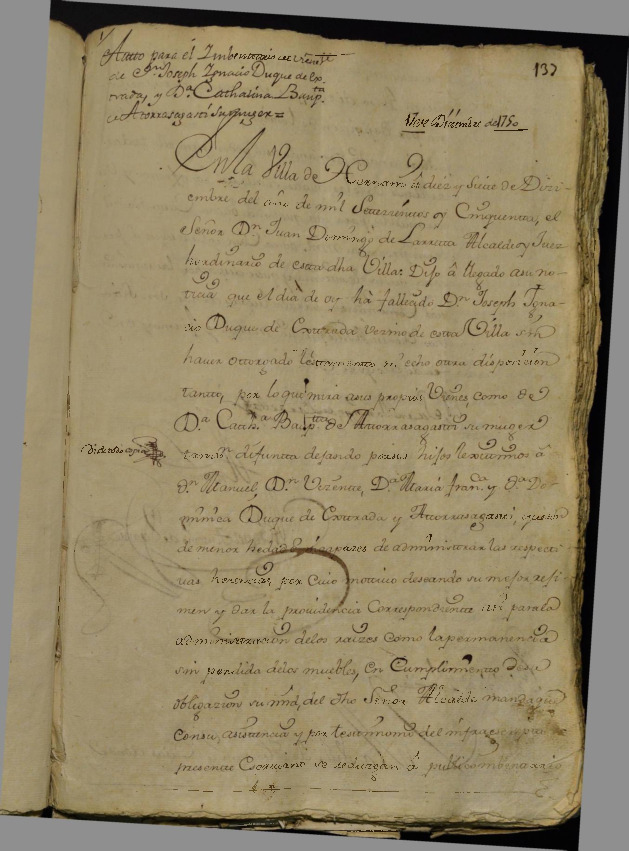 Auto para el Imbentario de vienes
de Dn Joseph Ignacio Duque de Es-
trada, y Da. Cathalina Baupta
de Atorrasagasti su muger =
137
17 de Diziembre de 1750
En la Villa de Hernani â diez y siete de Dizi-
embre del año de mil Setezientos y Cinquenta, el
Señor Dn Juan Domingo de Larreta Alcalde y Juez
hordinario de esta dha Villa: Dijo â llegado a su no-
ticia que el dia de oy hà fallezido Dn Joseph Igna-
cio Duque de Estrada vezino de esta Villa sin
haver ottorgado testamento ni echo otra disposicion
tanto, por lo que mira a sus propios Vienes, como de
Da Cath.a Baptta de Atorrasagasti su muger
tamvn difuntta dejando por sus hijos lexitimos â
Dn Manuel, Dn Vizente, Da Maria Franca y Da Do-
minica Duque de Estrada y Atorrasagasti, que son
de menor hedad e incapazes de administrar las respecti-
vas herencias, por cuio motivo deseando su mejor reji-
men y dar la providencia Correspondiente asi para la
administracion de los raizes como la permanencia
sin perdida de los muebles, en Cumplimiento de su
obligazion su mrd, del dho Señor Alcalde manda que
con su asistencia y por testimonio del infraescripto
presente Escrivano se reduzgan â publico imbentario
Di de todo copia